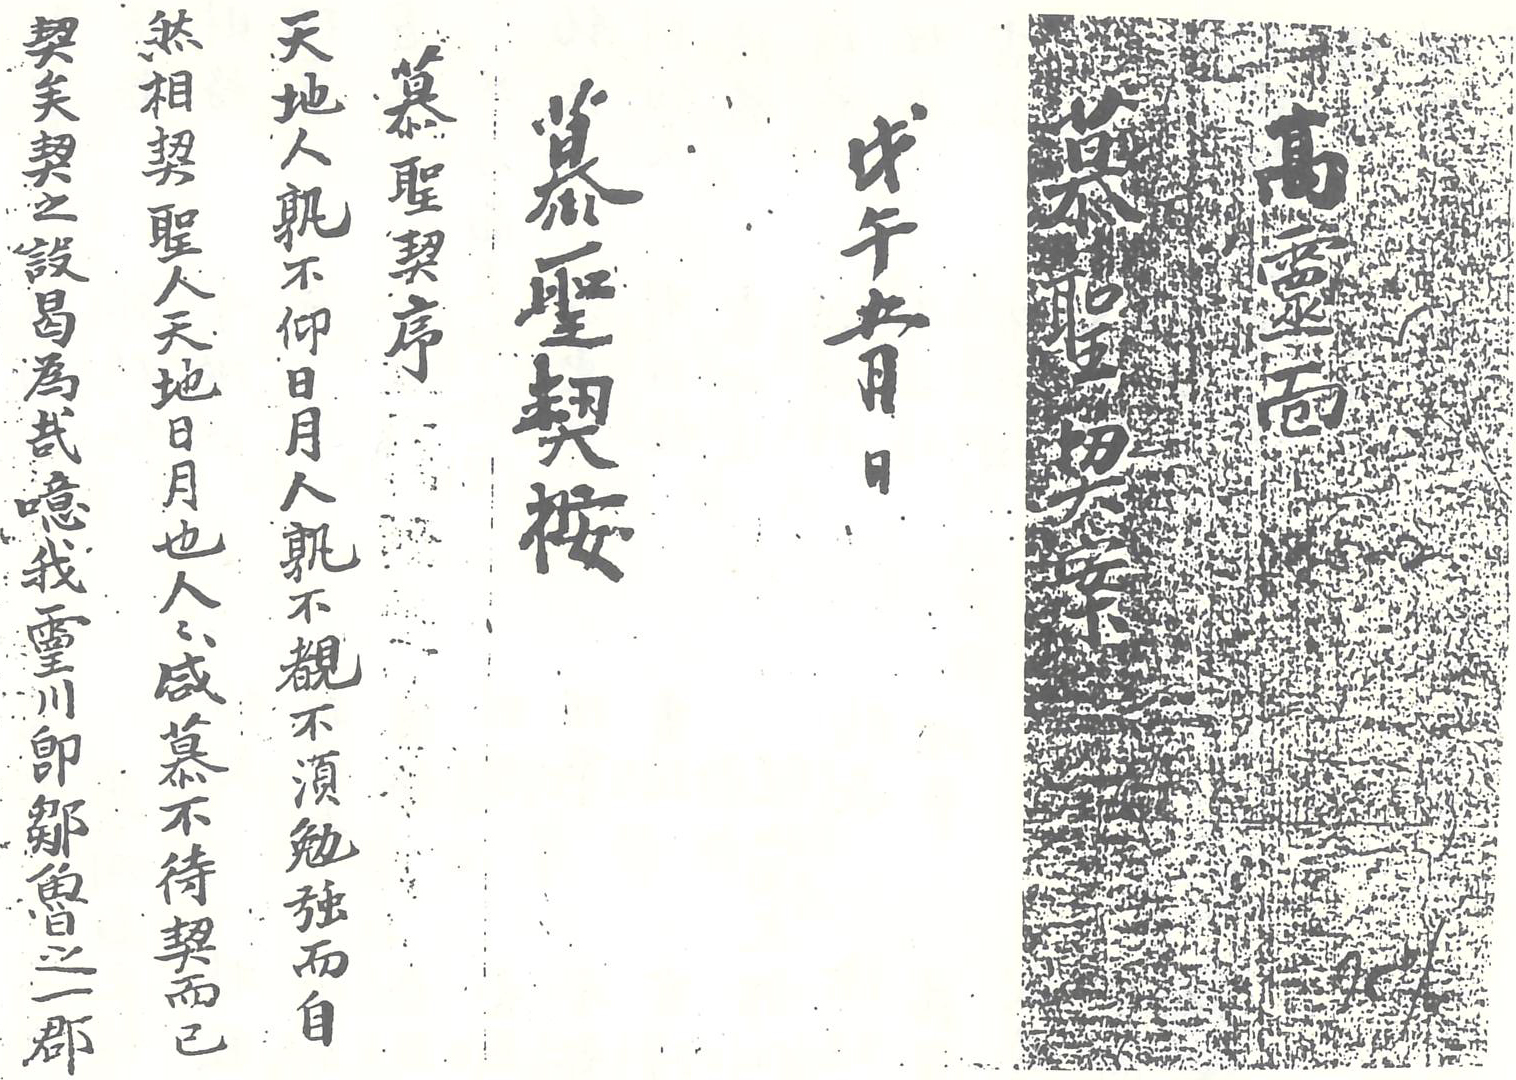 高靈面
慕聖契案
戊午五月 日
慕聖契按
慕聖契序
天地人孰不仰日月人孰不覩不須勉強而自
然相契聖人天地日月也人〻咸慕不待契而已
契矣契之設曷為哉噫我靈川卽鄒魯之一郡